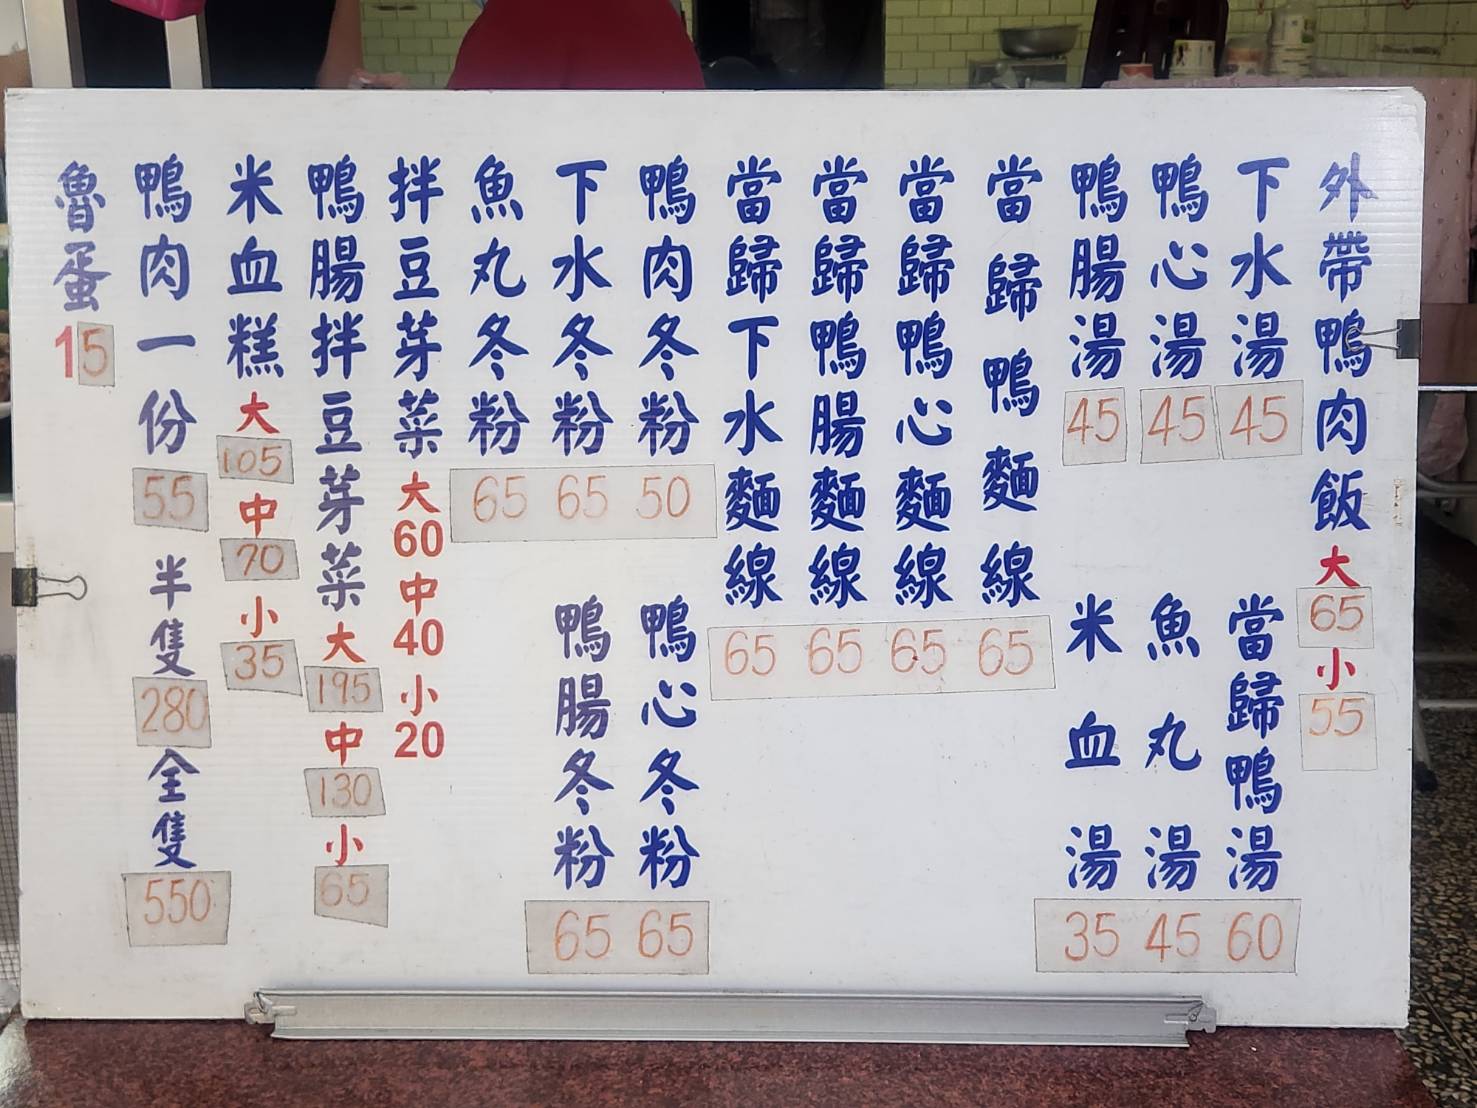 外帶鴨肉飯 大 65 小 55
下水湯 45
當歸鴨湯 60
鴨心湯 45
魚丸湯 45
鴨腸湯 45
米血湯 35
當歸鴨麵線 65
當歸鴨心麵線 65
當歸鴨腸麵線 65
當歸下水麵線 65
鴨肉冬粉 50
鴨心冬粉 65
下水冬粉 65
鴨腸冬粉 65
魚丸冬粉 65
拌豆芽菜 大 60 中 40 小 20
鴨腸拌豆芽菜 大 195 中 130 小 65
米血糕 大 105 中 70 小 35
鴨肉一份 55 半隻 280 全隻 550
魯蛋 15